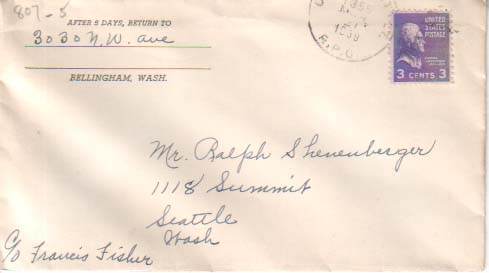 807-5
AFTER 5 DAYS, RETURN TO
3030 N.W. ave
BELLINGHAM, WASH.
1938
R.P.O.
UNITED
STATES
POSTAGE
3 CENTS 3
Mr. Ralph Shenenberger
1118 Summit
Seattle
Wash
c/o Francis Fisher